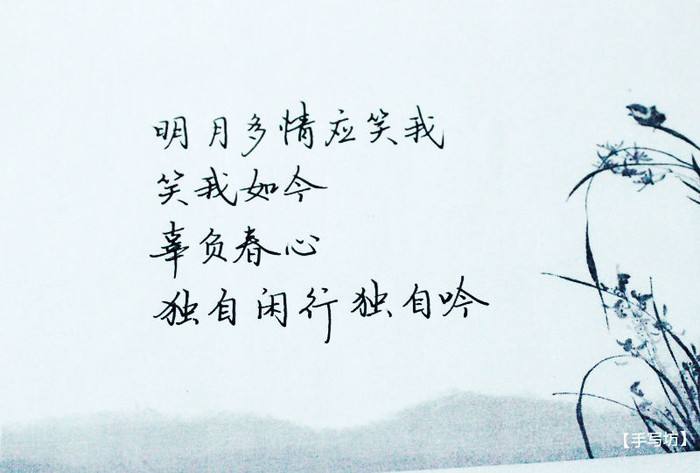 明月多情应笑我
笑我如今
辜负春心
独自闲行独自吟
【手写坊】